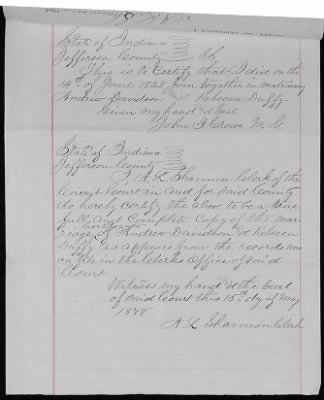 State of Indiana
Jefferson County
This is to Certify that I did on the
14th of June 1828 join together in matrimony
Andrew Davidson & Rebecca Duffy.
Given my hand & Seal
John Crowe M. G.
State of Indiana
Jefferson County
I A L Shannon Clerk of the
Circuit Court in and for Said County
do hereby certify the above to be a true
full and Complete Copy of the Mar-
riage certificate of Andrew Davidson & Rebecca
Duffy as appears from the records now
on file in the Clerks Office of Said
Court
Witness my hand & the Seal
of Said Court this 15th dy of May
1878
A L Shannon Clerk